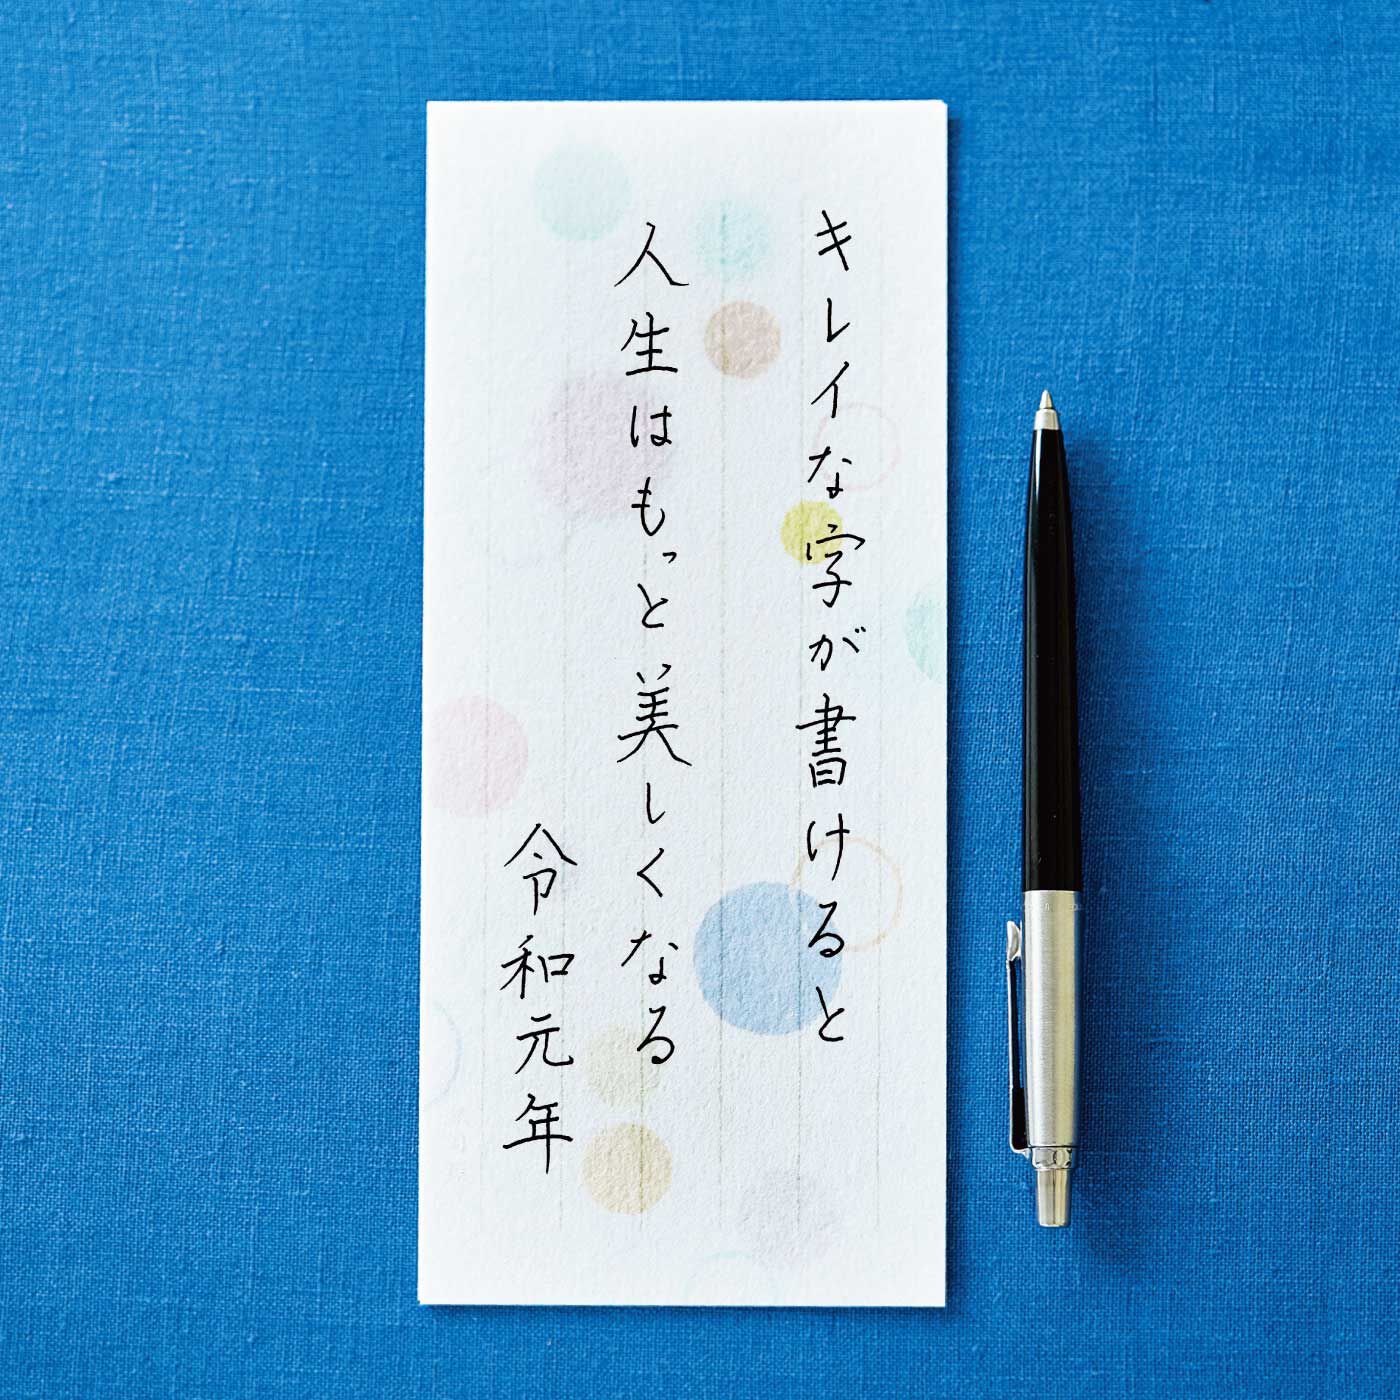 キレイな字が書けると
人生はもっと美しくなる
令和元年